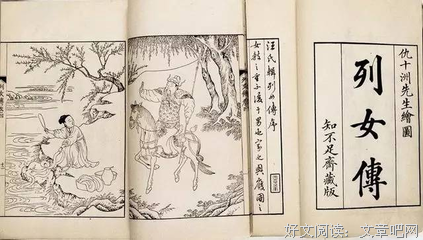 仇十洲先生繪圖
列女傳
知不足齋藏版
汪氏輯列女傳序
女教之重于男也家之興廢國之
好文阅读：文章吧网